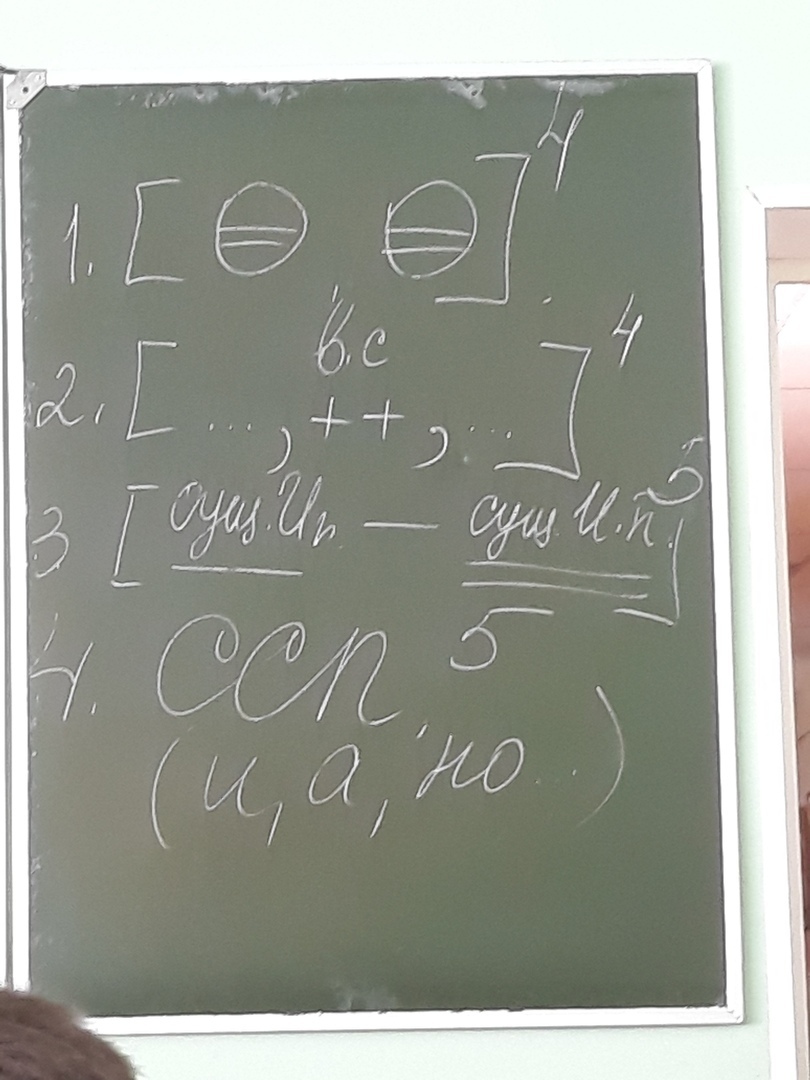 1. [ ⊜ ⊜ ] 4
в.с
2. [ ..., ++, ... ] 4
3 [ сущ. И п. — сущ. И.п. ] 5
4. ССП 5
(и, а, но...)